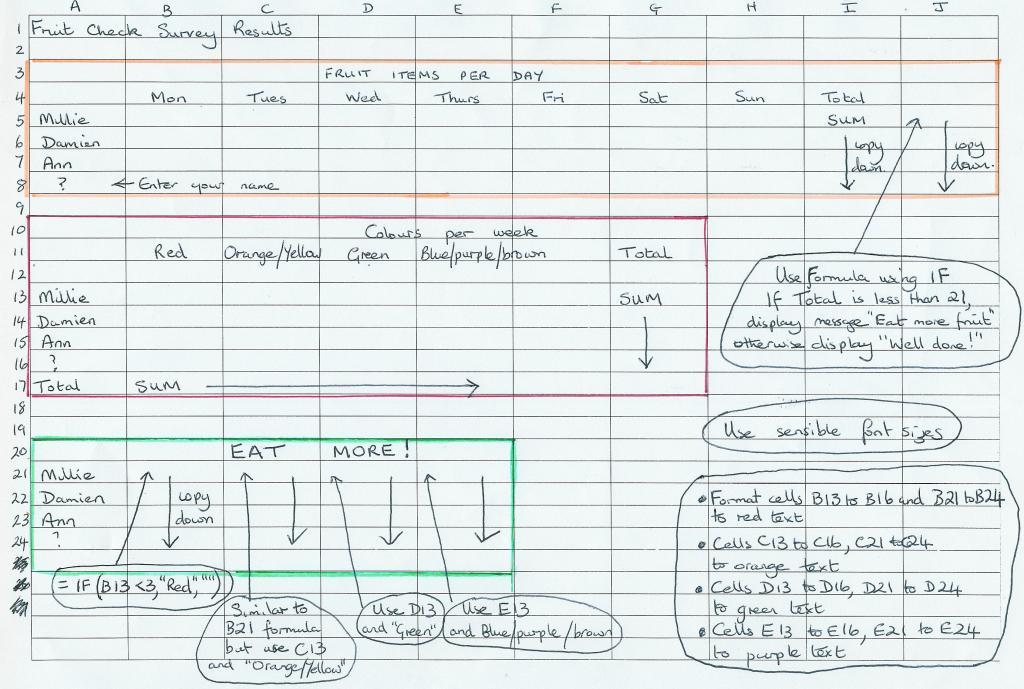 A B C D E F G H I J
1 Fruit Check Survey Results
2
3 FRUIT ITEMS PER DAY
4 Mon Tues Wed Thurs Fri Sat Sun Total
5 Millie SUM
6 Damien copy
7 Ann down
copy
down.
8 ? ← Enter your name
9
10 Colours per week
11 Red Orange/Yellow Green Blue/purple/brown Total
12
13 Millie SUM
14 Damien
15 Ann
16 ?
17 Total SUM
18
19
Use Formula using IF
If Total is less than 21,
display message "Eat more fruit"
otherwise display "Well done!"
Use sensible font sizes
20 EAT MORE!
21 Millie
22 Damien copy
23 Ann down
24 ?
= IF(B13<3,"Red","")
Similar to
B21 formula
but use C13
and "Orange/Yellow"
Use D13
and "Green"
Use E13
and Blue/purple/brown
• Format cells B13 to B16 and B21 to B24
to red text
• Cells C13 to C16, C21 to C24
to orange text
• Cells D13 to D16, D21 to D24
to green text
• Cells E13 to E16, E21 to E24
to purple text